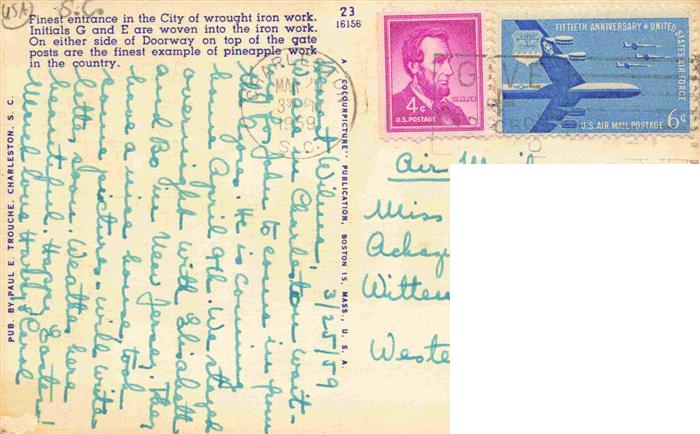 (USA) S.C.
Finest entrance in the City of wrought iron work.
Initials G and E are woven into the iron work.
On either side of Doorway on top of the gate
posts are the finest example of pineapple work
in the country.
23
16156
CHARLESTON
MAR 26
3 PM
1959
S.C.
GIVE
4¢
LINCOLN
U.S. POSTAGE
FIFTIETH ANNIVERSARY · UNITED STATES AIR FORCE
U.S. AIR MAIL POSTAGE 6¢
A "COLOURPICTURE" PUBLICATION, BOSTON 15, MASS., U. S. A.
PUB. BY PAUL E. TROUCHE, CHARLESTON, S. C.
3/25/59
Wilma,
We are in Charleston wait-
ing for John to come in from
the Azores. He is coming
back April 9th. We stayed
overnight with Elizabeth
and Bo in New Jersey. They
have a nice house, took
some pictures - will write
letter soon. Weather here
beautiful. Happy Easter!
Much love Carol
Air Mail
Miss
Witters
Weste